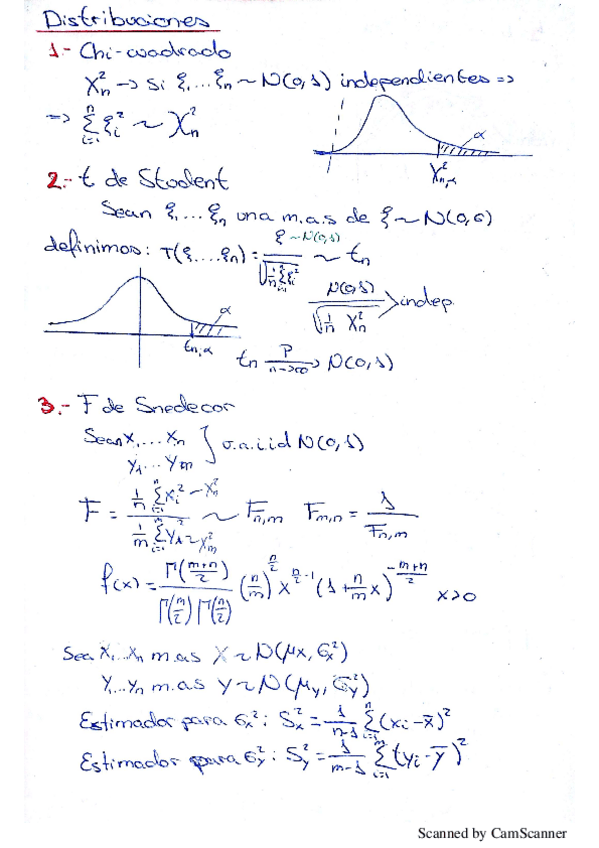 Distribuciones
1.- Chi-cuadrado
χ²ₙ → Si ξ₁...ξₙ ~ N(0,1) independientes =>
=> Σᵢ₌₁ⁿ ξᵢ² ~ χ²ₙ
α
χ²ₙ,α
2.- t de Student
Sean ξ₁...ξₙ una m.a.s de ξ ~ N(0,σ)
definimos: T(ξ₁...ξₙ) = ξ ~ N(0,1) / √(1/n Σᵢ₌₁ⁿ ξᵢ²) ~ tₙ
N(0,1) / √(1/n χ²ₙ) > indep.
α
tₙ,α
tₙ P/n→∞ → N(0,1)
3.- F de Snedecor
Sean X₁...Xₙ
Y₁...Ym } v.a.i.id N(0,1)
F = (1/n Σᵢ₌₁ⁿ xᵢ² ~ χ²ₙ) / (1/m Σᵢ₌₁ Y₁² ~ χ²m) ~ Fₙ,m Fm,n = 1/Fₙ,m
f(x) = Γ((m+n)/2) / (Γ(m/2) Γ(n/2)) (n/m)^(n/2) x^(n/2 - 1) (1 + n/m x)^(-(m+n)/2) x>0
Sea X₁...Xₙ m.as X ~ N(μx, σx²)
Y₁...Yₙ m.as Y ~ N(μy, σy²)
Estimador para σx²: Sx² = 1/(n-1) Σᵢ₌₁ⁿ (xi - x̄)²
Estimador para σy²: Sy² = 1/(m-1) Σᵢ₌₁ᵐ (yi - ȳ)²
Scanned by CamScanner